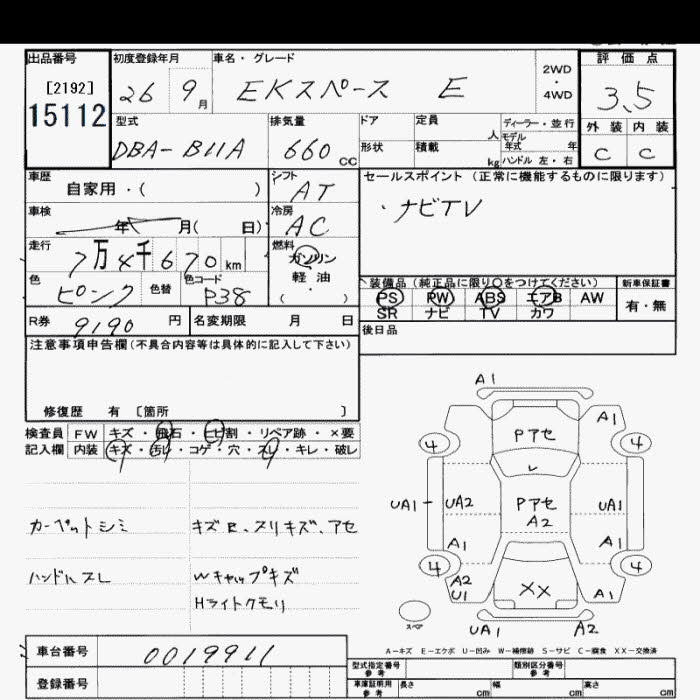 出品番号
[2192]
15112
初度登録年月
26 9月
車名・グレード
EKスペース E
2WD
・
4WD
評価点
3.5
外装 内装
C C
型式
DBA-B11A
排気量
660 CC
ドア
形状
定員 人
積載 kg
ディーラー・並行
モデル
年式 年
ハンドル 左・右
車歴
自家用・( )
シフト
AT
車検
年 月( 日)
冷房
AC
走行
7万4千670km
燃料
ガソリン
・
軽油
( )
色
ピンク
色替
色コード
P38
セールスポイント (正常に機能するものに限ります)
・ナビTV
装備品 (純正品に限り○をつけてください)
PS PW ABS エアB AW
SR ナビ TV カワ
新車保証書
有・無
R券
9190 円
名変期限 月 日
後日品
注意事項申告欄(不具合内容等は具体的に記入して下さい)
修復歴 有 〔箇所 〕
検査員
記入欄
FW キズ・飛石・ヒビ割・リペア跡・×要
内装 キズ・汚レ・コゲ・穴・スレ・キレ・破レ
カーペットシミ
キズE、スリキズ、アセ
ハンドルスレ
Wキャップキズ
Hライトクモリ
A1
A1
Pアセ
4 4
レ
UA1 UA2 Pアセ UA1
A2
A1 A1
4 4
A2
U1
XX
A1
スペア
UA1 A2
A-キズ E-エクボ U-凹み W-補修跡 S-サビ C-腐食 XX-交換済
車台番号
0019911
登録番号
型式指定番号
参考
類別区分番号
参考
車庫証明用
参考
長さ cm
幅 cm
高さ cm